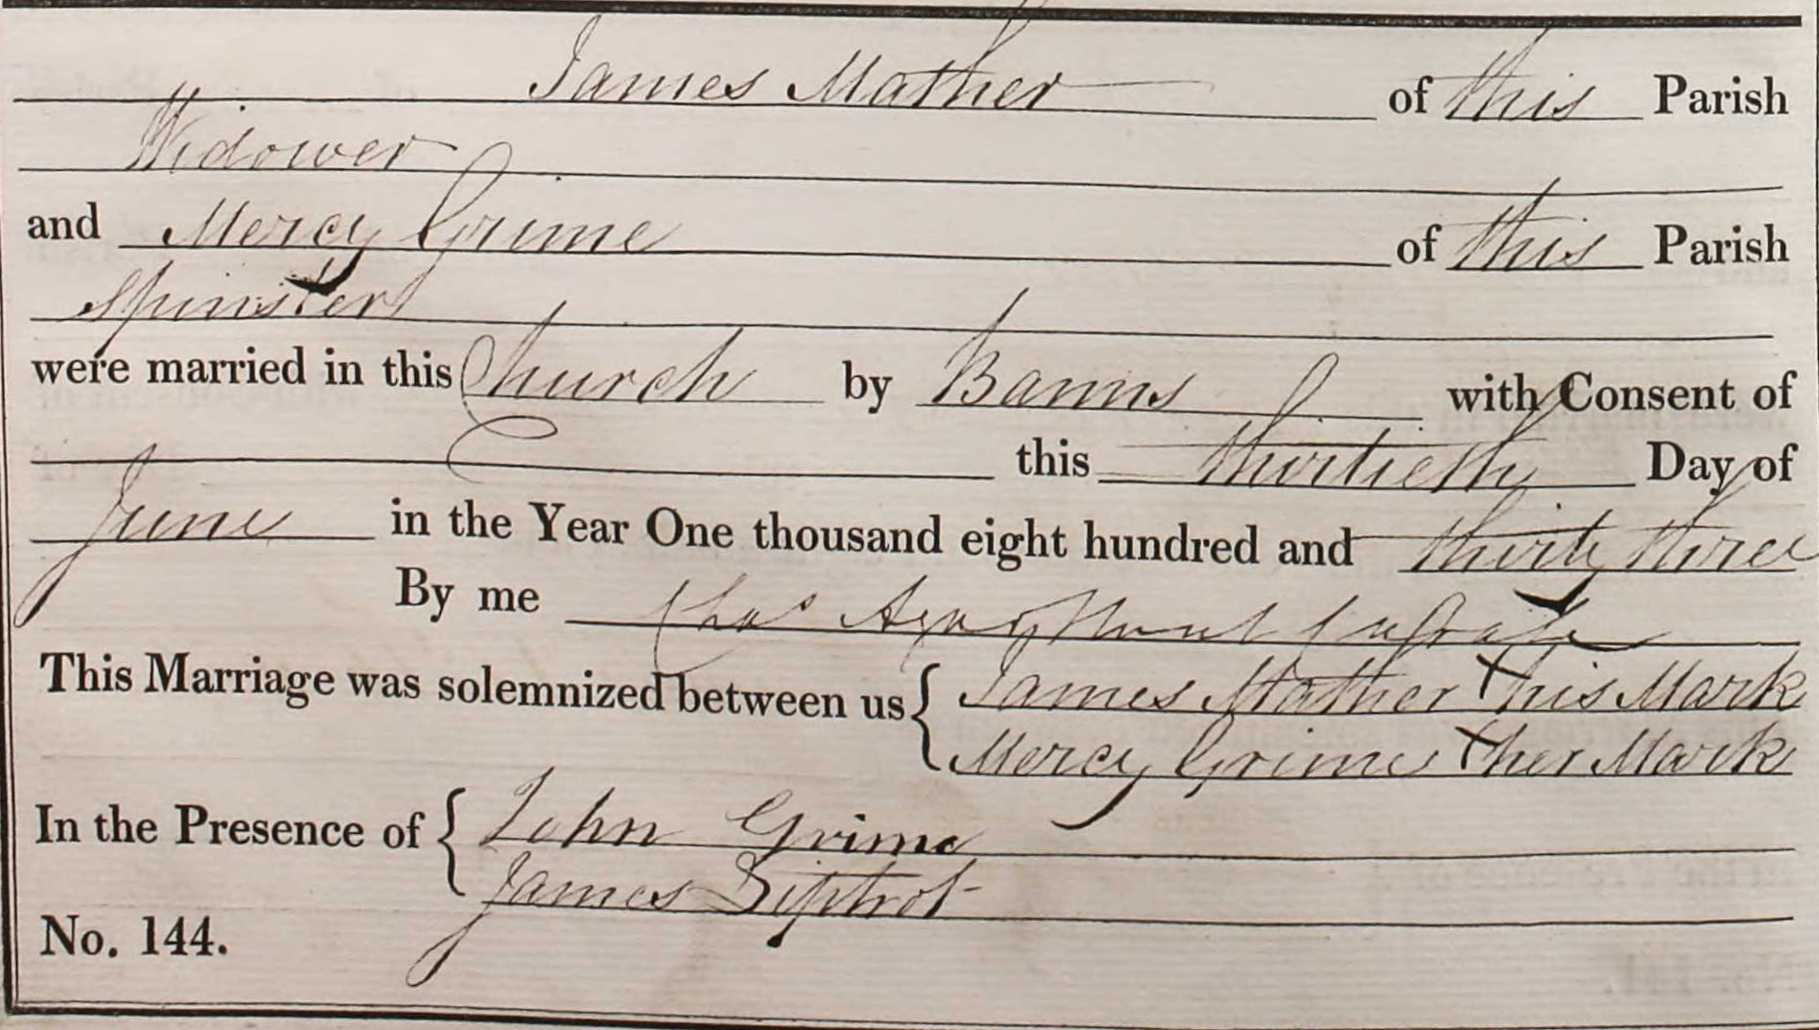 James Mather of this Parish
Widower
and Mercy Grime of this Parish
Spinster
were married in this Church by Banns with Consent of
this thirtieth Day of
June in the Year One thousand eight hundred and thirty three
By me Chas Curate
This Marriage was solemnized between us { James Mather X his Mark
Mercy Grime X her Mark
In the Presence of { John Grime
James Siptrot
No. 144.